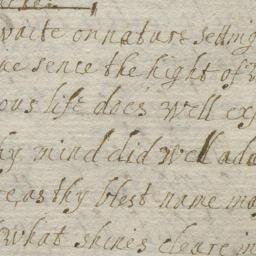 waite on nature setting
sence the hight of
ous life does well exp
hy mind did well ado
re, as thy blest name may
what shines cleare in